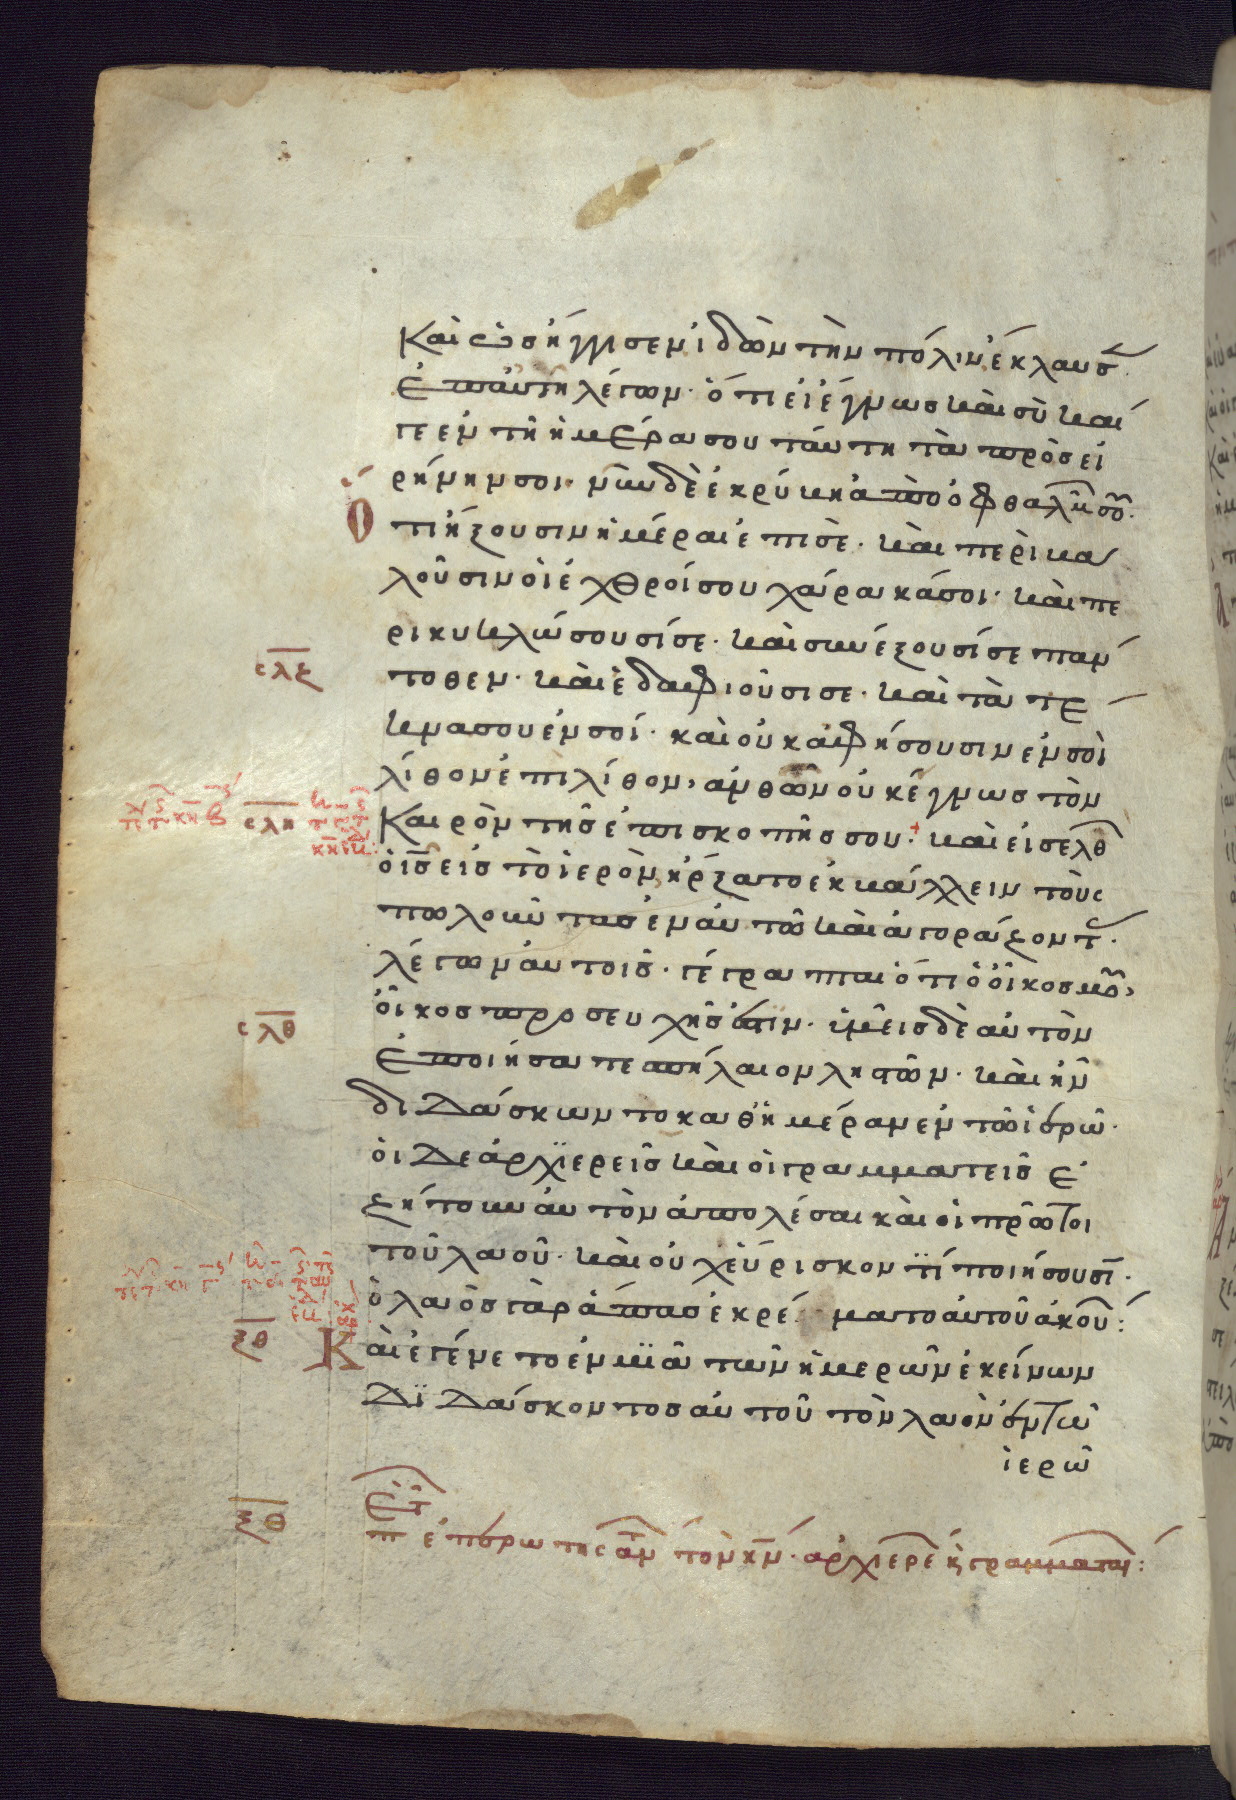 Καὶ ὡς ἤγγισεν ἰδὼν τὴν πόλιν ἔκλαυσ
ἐπ αὐτῆ λέγων· ὅτι εἰ ἔγνως καὶ σὺ καί
γε ἐν τῆ ἡμέρα σου ταύτη τὰ πρὸς εἰ
ρήνην σοι· νῦν δὲ ἐκρύβη ἀπὸ ὀφθαλμ σου·
Ὅτι ἥξουσιν ἡμέραι ἐπὶ σὲ· καὶ περιβα
λοῦσιν οἱ ἐχθροί σου χάρακά σοι· καὶ πε
ρικυκλώσουσί σε· καὶ συνέξουσί σε πάν
σλζ
τοθεν· καὶ ἐδαφιοῦσι σε· καὶ τὰ τέ
κνα σου ἐν σοί· καὶ οὐκ ἀφήσουσιν ἐν σοὶ
λίθον ἐπὶ λίθον, ἀνθ ὧν οὐκ ἔγνως τὸν
σλη
Καιρὸν τῆς ἐπισκοπῆς σου· καὶ εἰσελθ
ὁ ις εἰς τὸ ἱερὸν ἤρξατο ἐκβάλλειν τοὺς
πωλοῦντας ἐν αὐτῶ καὶ ἀγοράζοντ·
λέγων αὐτοῖς· γέγραπται ὅτι ὁ οἶκος μου,
οἶκος προσευχῆς ἐστιν· ὑμεῖς δὲ αὐτὸν
σλθ
ἐποιήσατε σπήλαιον ληστῶν· καὶ ἦν
διδάσκων το καθ ἡμέραν ἐν τῶ ἱερῶ·
οἱ δε ἀρχιερεῖς καὶ οἱ γραμματεῖς ἐ
ζήτουν αὐτὸν ἀπολέσαι καὶ οἱ πρῶτοι
τοῦ λαοῦ· καὶ οὐχ εὕρισκον τί ποιήσουσι·
ὁ λαὸς γὰρ ἅπας ἐκρέματο αὐτοῦ ἀκού:
ξθ
Καὶ ἐγένετο ἐν μιᾶ τῶν ἡμερῶν ἐκείνων
διδάσκοντος αὐτοῦ τὸν λαὸν ἐν τῶ
ἱερῶ
ξθ
π ἐπερωτησάν τὸν κν· ἀρχιερε κ γραμμαται: